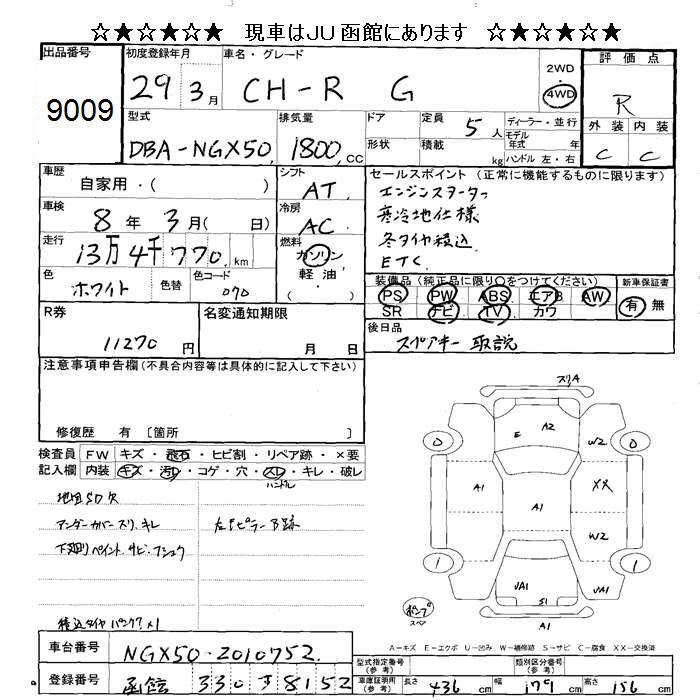 ☆★☆★☆★ 現車はJU函館にあります ☆★☆★☆★
出品番号 初度登録年月 車名・グレード 評価点
9009 29 3月 CH-R G 2WD・4WD R
型式 排気量 ドア 定員 5人 ディーラー・並行 外装 内装
DBA-NGX50 1800 CC 形状 積載 kg モデル年式 年 ハンドル 左・右 C C
車歴 自家用・( ) シフト AT セールスポイント (正常に機能するものに限ります)
車検 8年 3月( 日) 冷房 AC エンジンスターター
寒冷地仕様
走行 13万4千770 km 燃料 ガソリン 軽油 ( ) 冬タイヤ積込
ETC
色 ホワイト 色替 色コード 070 装備品 (純正品に限り○をつけてください) 新車保証書
PS PW ABS エアB AW 有 無
SR ナビ TV カワ
R券 11270円 名変通知期限 月 日 後日品
スペアキー 取説
注意事項申告欄 (不具合内容等は具体的に記入して下さい)
修復歴 有 〔箇所 〕
検査員記入欄 FW キズ・飛石・ヒビ割・リペア跡・×要
内装 キズ・汚レ・コゲ・穴・スレ・キレ・破レ
ハンドル
地図SD欠
アンダーカバースリ、キレ 左Eピラー下跡
下廻りペイント サビ・フショク
積込タイヤパンク?×1
スリA
E A2
0 W2 0
A1 A1 XX
W2
1 JA1 JA1 1
S1
ポンプ
スペア A1
A-キズ E-エクボ U-凹み W-補修跡 S-サビ C-腐食 XX-交換済
車台番号 NGX50-2010752 型式指定番号 (参考) 類別区分番号 (参考)
登録番号 函館 330 す 8152 車庫証明用 (参考) 長さ 436 cm 幅 179 cm 高さ 156 cm